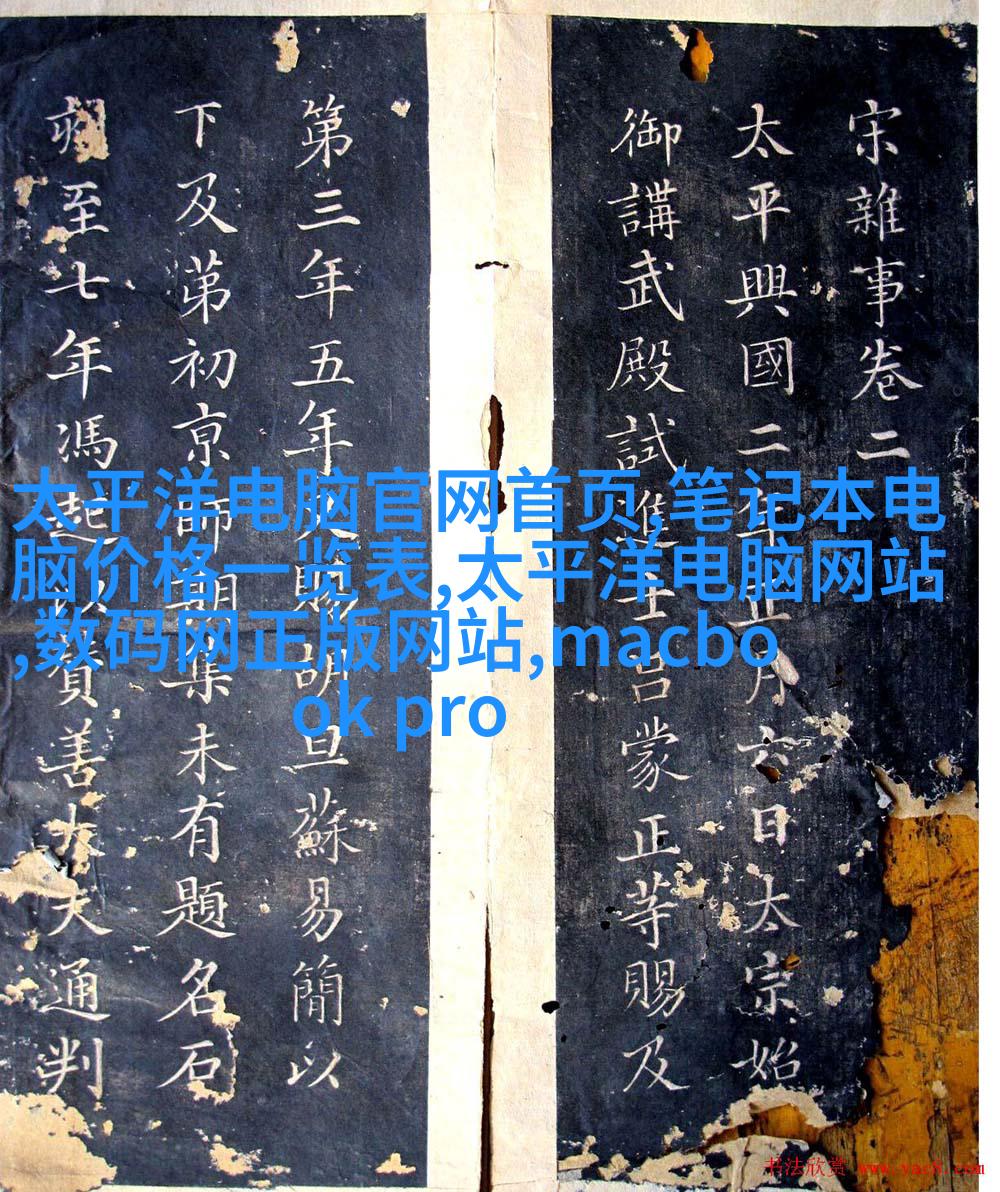 宋雜事卷二
太平興國二年正月六日太宗始
御講武殿試進士呂蒙正等賜及
第三年五年又賜明旦蘇易簡以
下及苐初京師期集未有題名石
至七年馮起以賛善大夫通判
太平洋电脑官网首页,笔记本电
脑价格一览表,太平洋电脑网站
,数码网正版网站,macbo
ok pro
书法欣赏 www.yac8.com